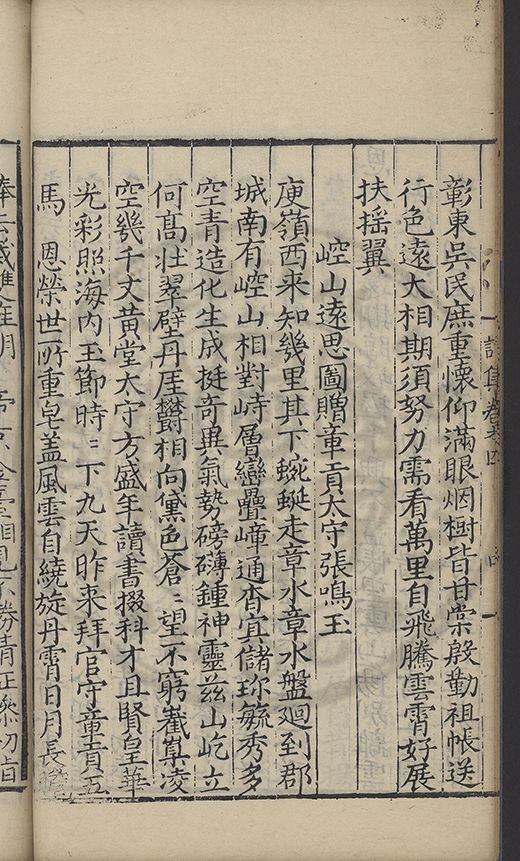 詩集卷之四
彰東吳民庶重懷仰滿眼烟樹皆甘棠殷勤祖帳送
行色遠大相期須努力需看萬里自飛騰雲霄好展
扶揺翼
崆山遠思圖贈章貢太守張鳴玉
庾嶺西来知幾里其下蜿蜒走章水章水盤迴到郡
城南有崆山相對峙層巒疊嶂通杳㝠儲珎毓秀多
空青造化生成挺竒異氣勢磅礴鍾神靈兹山屹立
何髙壮翠壁丹厓欝相向黛色蒼〻望不窮凌
空幾千丈黄堂太守方盛年讀書掇科才且賢皇華
光彩照海内玉節時〻下九天昨来拜官守章貢五
馬恩榮世所重皂盖風雲自繞旋丹霄日月長瞻